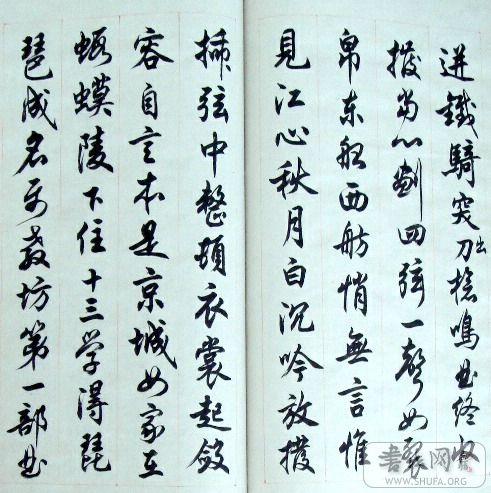 迸鐵騎突出刀槍鳴曲終收
撥當心劃四弦一聲如裂
帛東船西舫悄無言惟
見江心秋月白沉吟放撥
插弦中整頓衣裳起斂
容自言本是京城女家在
蝦蟆陵下住十三学得琵
琶成名屬教坊第一部曲
WWW.SHUFA.ORG